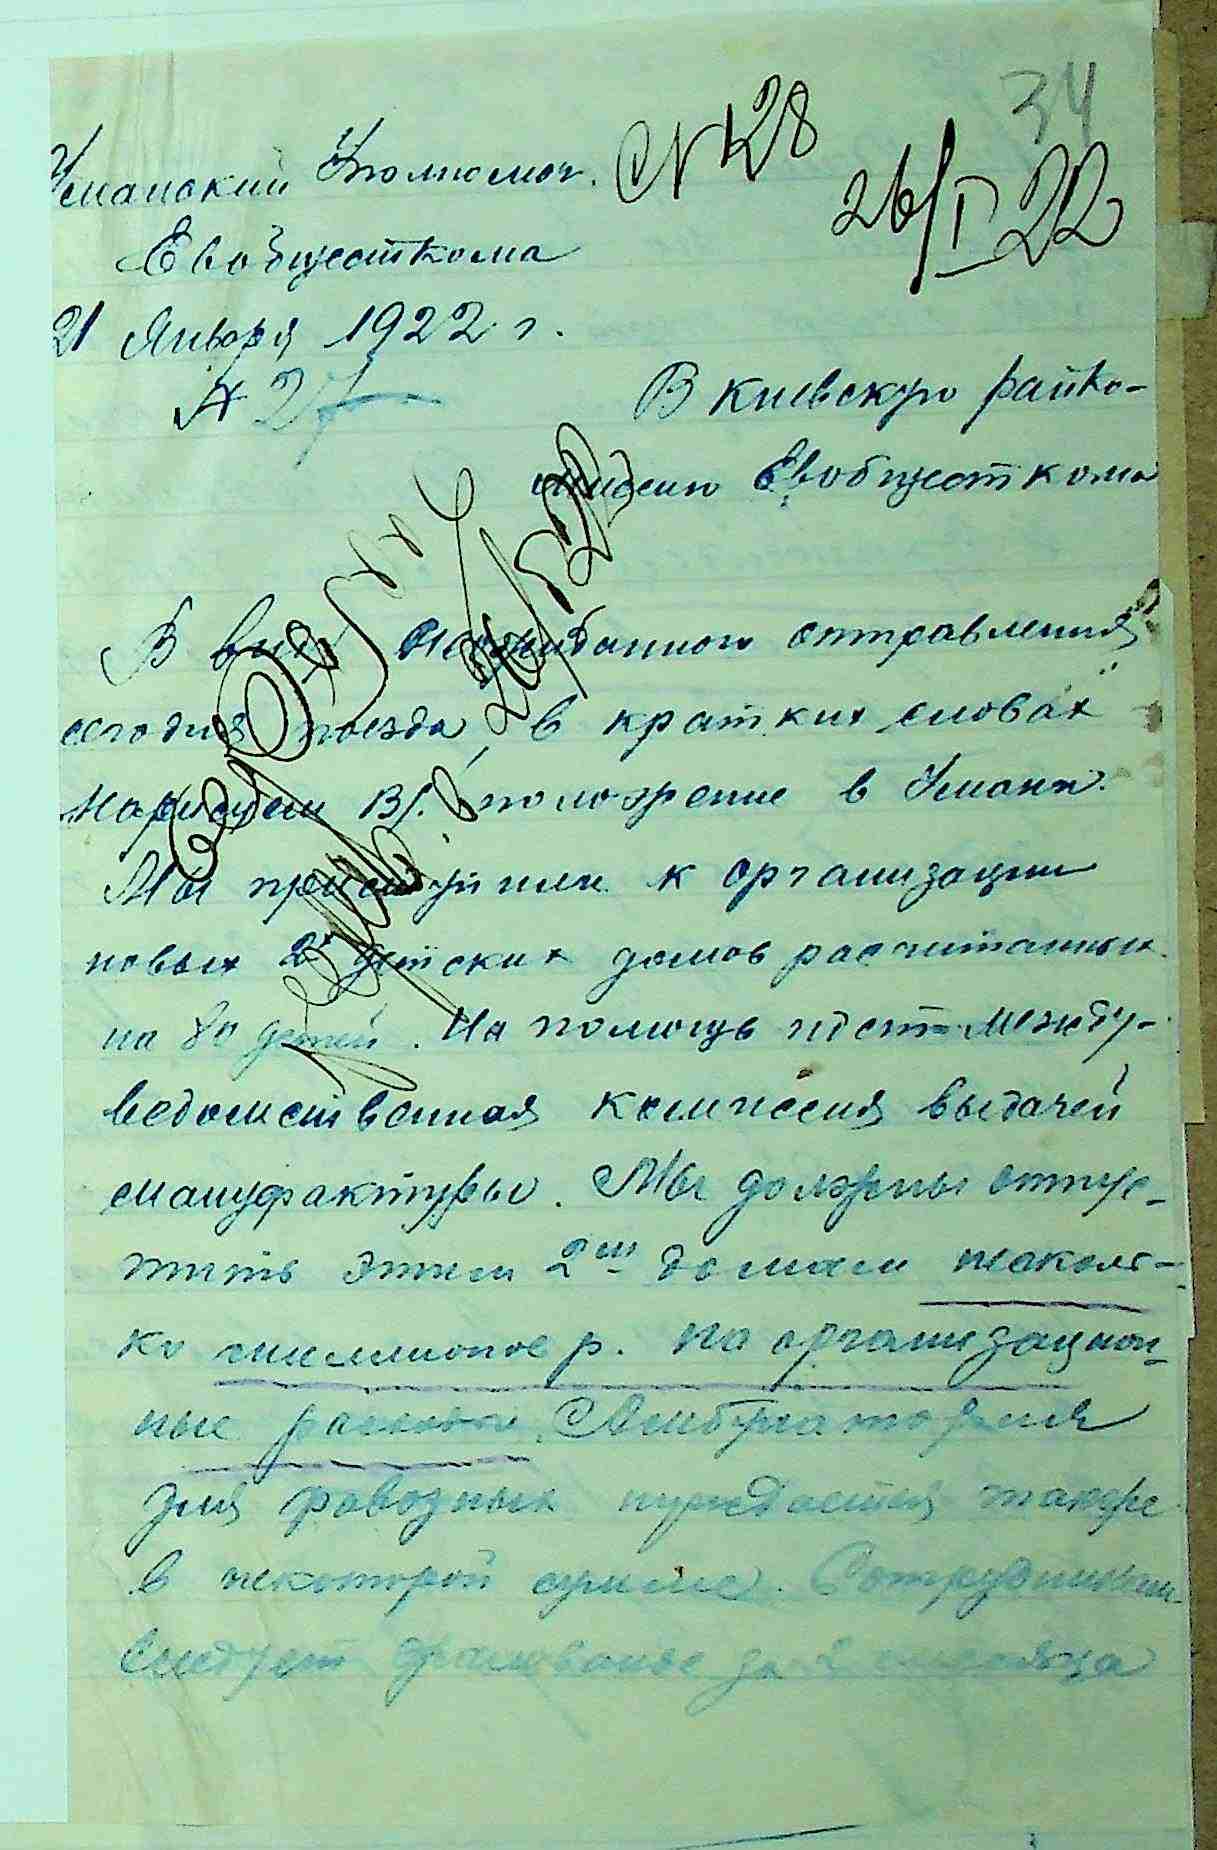 34
Уманский Уполномоч. № 128
26/I 22
Евобщесткома
21 Января 1922 г.
№ 27
В Киевскую райко-
миссию Евобщесткома
26/I 22
В виду неожиданного отправления
сегодня поезда, в кратких словах
нарисуем Вам положение в Умани.
Мы приступили к организации
новых 2х детских домов расчитанных
на 80 детей. На помощь идет Между-
ведомственная комиссия выдачей
мануфактуры. Мы должны отпус-
тить этим 2м домам несколь-
ко миллионов р. на организацион-
ные расходы. Амбулатория
для
нуждается также
в некоторой сумме. Сотрудникам
следует жалованье за 2 месяца